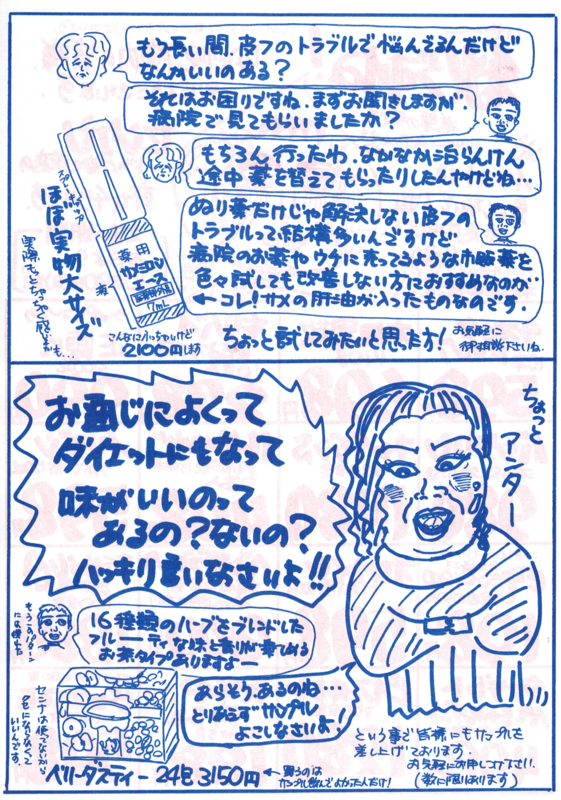 もう長い間、皮フのトラブルで悩んでるんだけど
なんかいいのある？
それはお困りですね、まずお聞きしますが、
病院で見てもらいましたか？
もちろん行ったわ、なかなか治らんけん
途中薬を替えてもらったりしたんやけどね…
ぬり薬だけじゃ解決しない皮フの
トラブルって結構多いんですけど
病院のお薬やウチに売ってるような市販薬を
色々試しても改善しない方におすすめなのが
←コレ！サメの肝油が入ったものなのです.
ほぼ実物大サイズ
液
薬用
サメミロン
エース
医薬部外品
7mL
こんなに小っちゃいけど
2100円します
ちょっと試してみたいと思った方！
お気軽に
御相談下さいね.
お通じによくって
ダイエットにもなって
味がいいのって
あるの？ないの？
ハッキリ言いなさいよ!!
ちょっと
アンター
もうこのパターン
には慣れた
16種類のハーブをブレンドした
フルーティな味と香りが楽しめる
お茶タイプありますよー
あらそう、あるのね…
とりあえずサンプル
よこしなさいよ！
という事で皆様にもサンプルを
差し上げております.
お気軽にお申しつけ下さい.
(数に限りあります)
ベリーダスティー 24包 3150円
←買うのは
サンプル飲んでよかった人だけ！